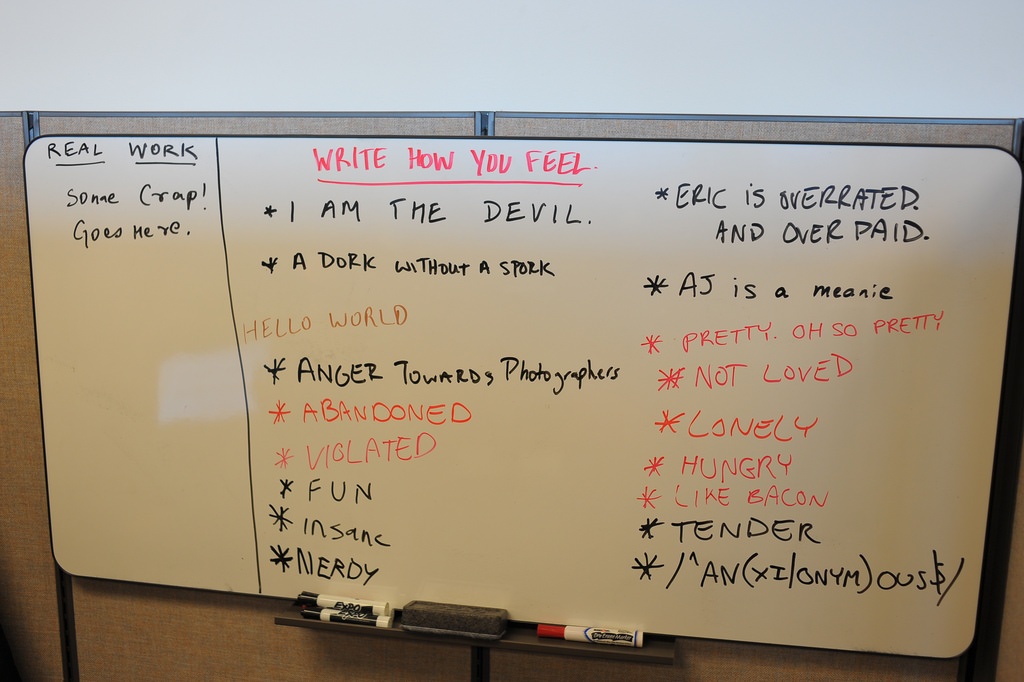 REAL WORK
Some Crap!
Goes Here.
WRITE HOW YOU FEEL.
* I AM THE DEVIL.
* A DORK WITHOUT A SPORK
HELLO WORLD
* ANGER TOWARDS Photographers
* ABANDONED
* VIOLATED
* FUN
* insane
* NERDY
* ERIC IS OVERRATED.
AND OVER PAID.
* AJ is a meanie
* PRETTY. OH SO PRETTY
* NOT LOVED
* LONELY
* HUNGRY
* LIKE BACON
* TENDER
* /^AN(XI/ONYM)OUS$/
EXPO